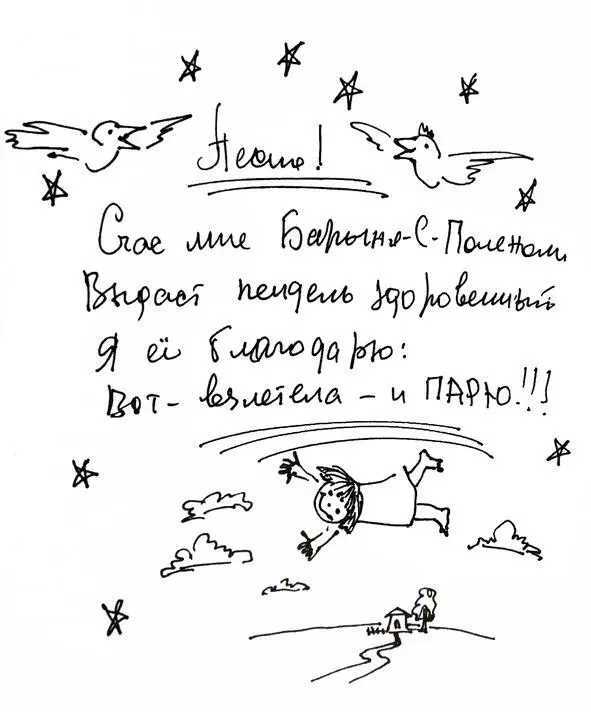 Счас мне Барыня-С-Поленом
Выдаст пендель здоровенный
Я её благодарю:
Вот - взлетела - и ПАРЮ!!!